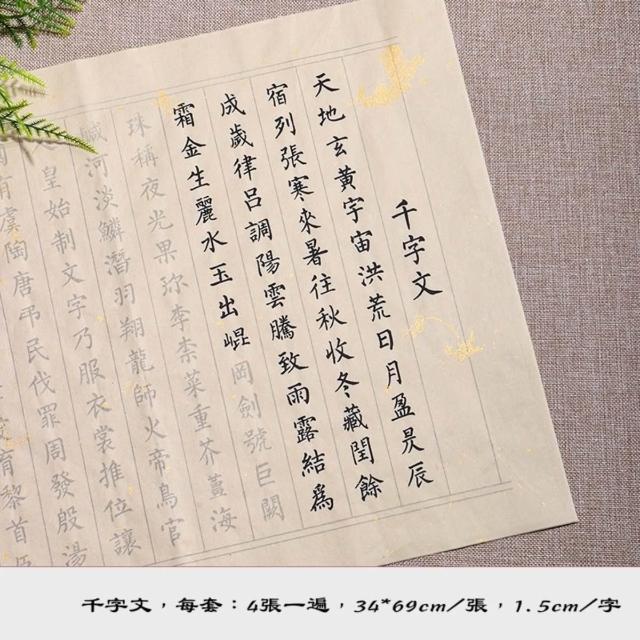 千字文
天地玄黃宇宙洪荒日月盈昃辰
宿列張寒來暑往秋收冬藏閏餘
成歲律呂調陽雲騰致雨露結為
霜金生麗水玉出崐岡劍號巨闕
珠稱夜光果珎李柰菜重芥薑海
鹹河淡鱗潛羽翔龍師火帝鳥官
皇始制文字乃服衣裳推位讓
有虞陶唐弔民伐罪周發殷湯
育黎首臣
千字文，每套：4張一遍，34*69cm/張，1.5cm/字